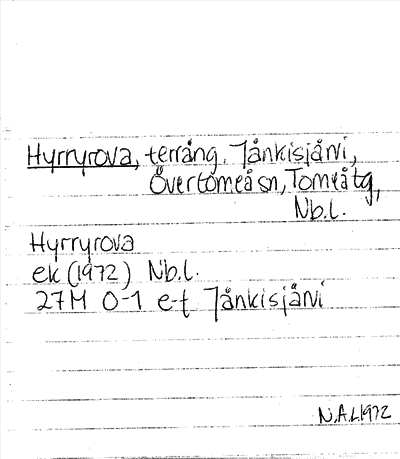 Hyrryrova, terräng. Jänkisjärvi,
Övertorneå sn, Torneå tg,
Nb.l.
Hyrryrova
ek (1972) Nb.l.
27M 0-1 e-f Jänkisjärvi
N.A.L 1972